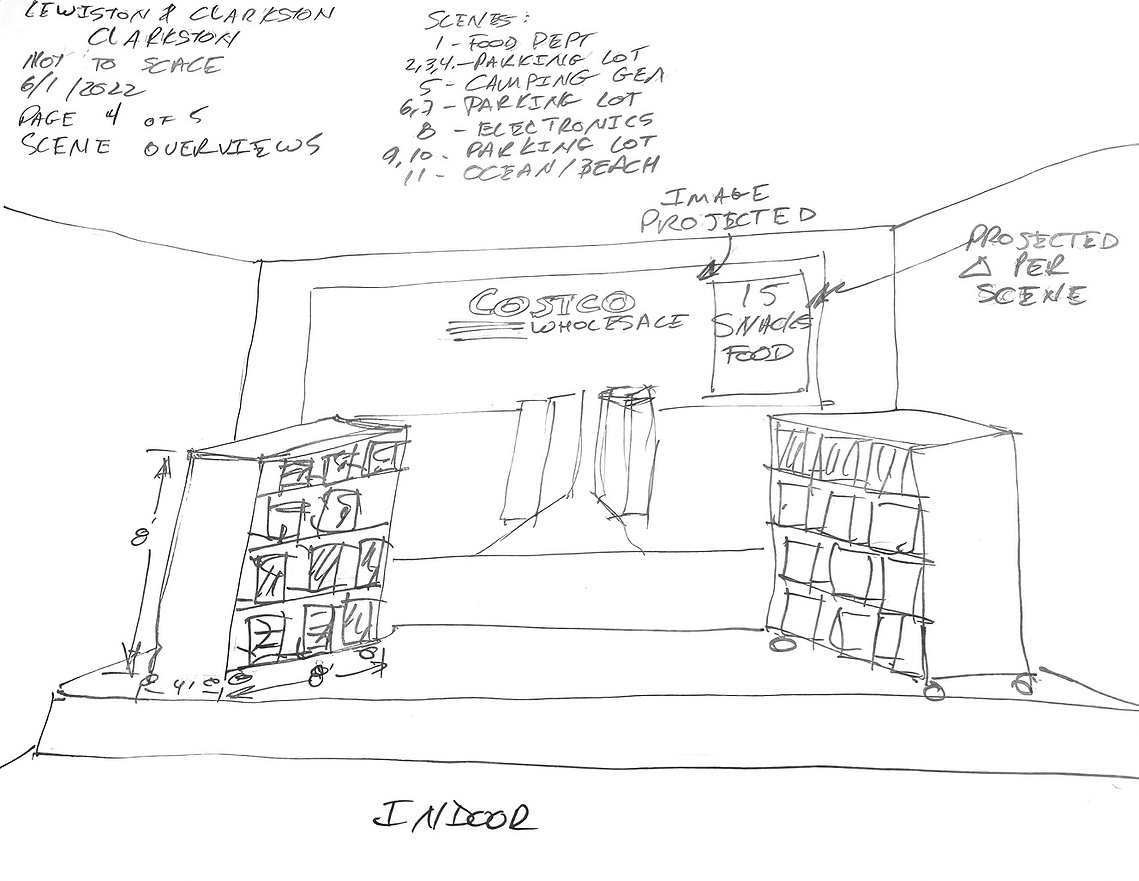 LEWISTON & CLARKSTON
CLARKSTON
NOT TO SCALE
6/1/2022
PAGE 4 OF 5
SCENE OVERVIEWS
SCENES:
1 - FOOD DEPT
2,3,4. - PARKING LOT
5 - CAMPING GEA
6,7 - PARKING LOT
8 - ELECTRONICS
9,10 - PARKING LOT
11 - OCEAN/BEACH
IMAGE
PROJECTED
PROJECTED
Δ PER
SCENE
COSTCO
WHOLESALE
15
SNACKS
FOOD
8'
4'
8'
INDOOR